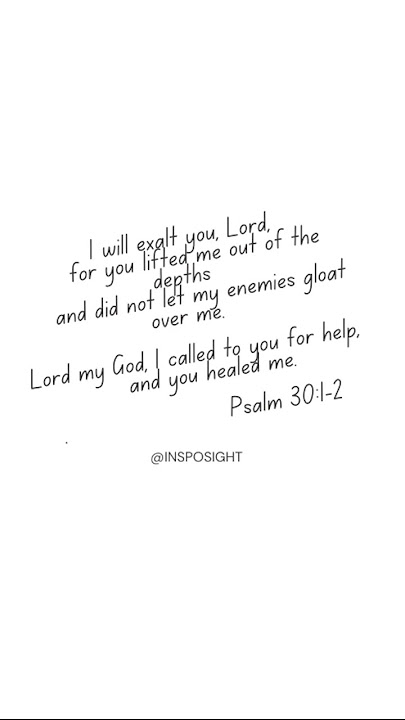 I will exalt you, Lord,
for you lifted me out of the
depths
and did not let my enemies gloat
over me.
Lord my God, I called to you for help,
and you healed me.
Psalm 30:1-2
.
@INSPOSIGHT